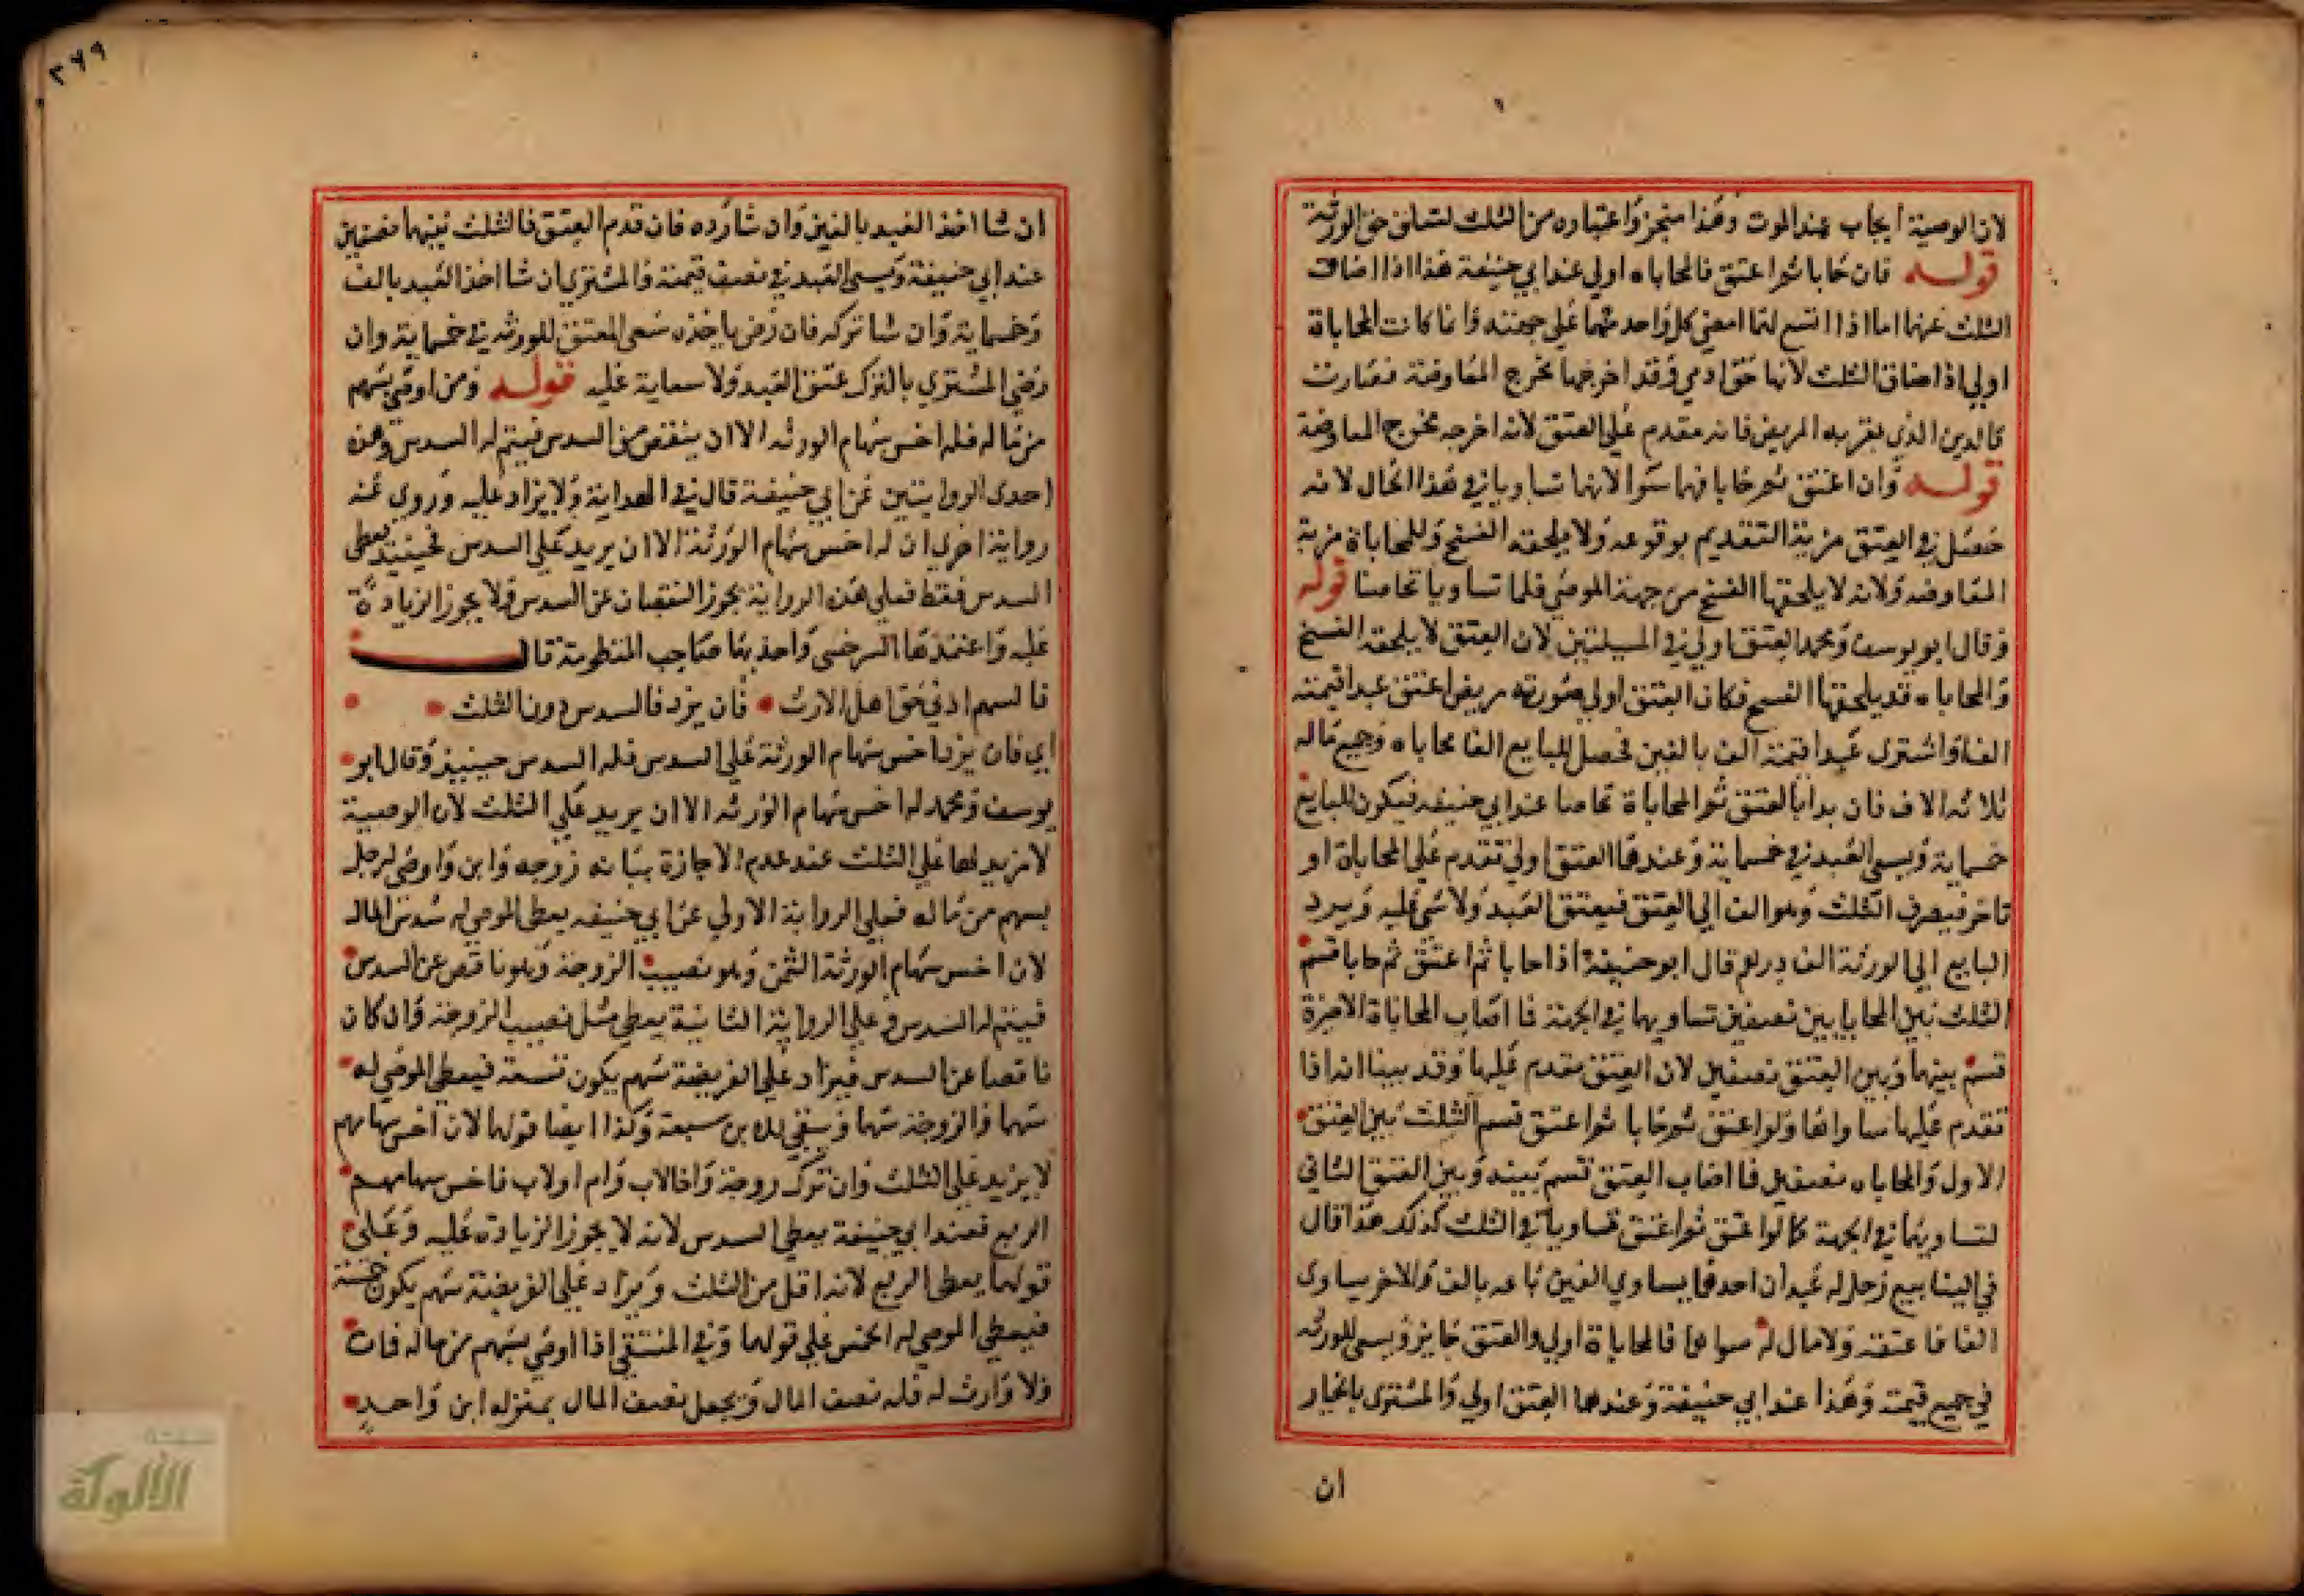 لان الوصية ايجاب عند الموت وهذا منجز واعتباره من الثلث لتعلق حق الورثة
قوله فان حابا ثم اعتق فالمحاباه اولي عند ابي حنيفة هذا اذا ضاق
الثلث عنهما اما اذا اتسع لهما امضي كل واحد منهما علي جهته وانما كانت المحاباة
اولي اذا ضاق الثلث لانها حق ادمي وقد اخرجها مخرج المعاوضة فصارت
كالدين الذي يقر به المريض فانه مقدم علي العتق لانه اخرجه مخرج المعاوضة
قوله وان اعتق ثم حابا فهما سوا لانهما تساويا في هذا الحال لانه
حصل في العتق مزية التقديم بوقوعه ولا يلحقه الفسخ وللمحاباة مزية
المعاوضه ولانه لا يلحقها الفسخ من جهة الموصي فلما تساويا تحاصا قوله
وقال ابو يوسف ومحمد العتق اولي في المسيلتين لان العتق لا يلحقه الفسخ
والمحاباه قد يلحقها الفسخ فكان العتق اولي صورته مريض اعتق عبدا قيمته
الف واشترى عبدا قيمته الف بالفين فحصل للبايع الفا محاباه وجميع ماله
ثلاثه الاف فان بدا بالعتق ثم المحاباة تحاصا عند ابي حنيفه فيكون للبايع
خمسماية ويسعي العبد في خمسماية وعندهما العتق اولي تقدم علي المحاباة او
تاخر فيصرف الثلث وهو الف الي العتق فيعتق العبد ولا شي عليه ويرد
البايع الي الورثة الف درهم قال ابو حنيفة اذا حابا ثم اعتق ثم حابا قسم
الثلث بين المحابايتين نصفين تساويهما في الجهة فما اصاب المحاباة الاخيرة
قسم بينها وبين العتق نصفين لان العتق مقدم عليها وقد بينا انه اذا
تقدم عليها ساواها ولو اعتق ثم حابا ثم اعتق قسم الثلث بين العتق
الاول والمحاباه نصفين فما اصاب العتق قسم بينه وبين العتق الثاني
لتساويهما في الجهة كما لو اعتق ثم اعتق تساويا في الثلث كذلك هذا قال
في الينابيع رجل له عبدان احدهما يساوي الفين باعه بالف والاخر يساوى
الفا فاعتقه ولا مال له سواهما فالمحاباة اولي والعتق جايز ويسعى للورثه
في جميع قيمته وهذا عند ابي حنيفة وعندهما العتق اولي والمشترى بالخيار
ان
٣٦٩
ان شا اخذ العبد بالفين وان شا رده فان قدم العتق فالثلث بينهما نصفين
عند ابي حنيفة ويسعى العبد في نصف قيمته والمشتري ان شا اخذ العبد بالف
وخمسماية وان شا تركه فان رضي باخذه سعى المعتق للورثه في خمسماية وان
رضي المشتري بالترك عتق العبد ولا سعاية عليه قوله ومن اوصي بسهم
من ماله فله اخس سهام الورثه الا ان ينقص من السدس فيتم له السدس وهذه
احدى الروايتين عن ابي حنيفة قال في الهداية ولا يزاد عليه وروي عنه
رواية اخرى ان له اخس سهام الورثة الا ان يريد علي السدس فحينيذ يعطى
السدس فقط فعلي هذه الرواية يجوز النقصان عن السدس ولا يجوز الزيادة
عليه واعتمدها السرخسى واخذ بها صاحب المنظومة قال
فالسهم ادني حق اهل الارث فان يزد فالسدس دون الثلث
اي فان يزد اخس سهام الورثة علي السدس فله السدس حينيذ وقال ابو
يوسف ومحمد له اخس سهام الورثه الا ان يريد علي الثلث لان الوصية
لا مزيد لها علي الثلث عند عدم الاجازة بيانه زوجه وابن واوصى لرجل
بسهم من ماله فعلي الرواية الاولي عن ابي حنيفه يعطى الموصي له سدس المال
لان اخس سهام الورثة الثمن وهو نصيب الزوجة وهو ناقص عن السدس
فيتم له السدس وعلي الرواية الثانية يعطي مثل نصيب الزوجة وان كان
ناقصا عن السدس فيزاد علي الفريضة سهم يكون تسعة فيعطي الموصي له
سهما والزوجة سهما ويبقي للابن سبعة وكذا ايضا قولهما لان اخس سهامهم
لا يزيد علي الثلث وان ترك زوجة واخا لاب وام او لاب فاخس سهامهم
الربع فعند ابي حنيفة يعطي السدس لانه لا يجوز الزيادة عليه وعلي
قولهما يعطى الربع لانه اقل من الثلث ويزاد علي الفريضة سهم يكون خمسة
فيعطي الموصي له الخمس علي قولهما وفي المنتقي اذا اوصي بسهم من ماله فمات
ولا وارث له فله نصف المال ويجعل نصف المال بمنزله ابن واحد
الألوكة